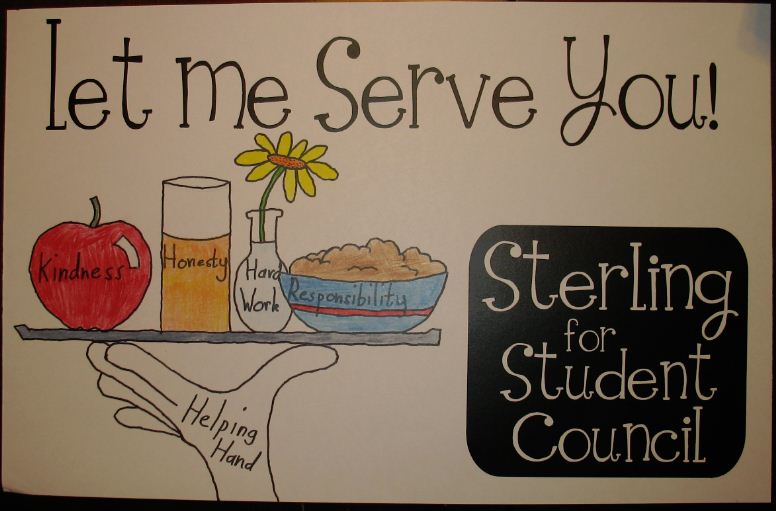 Let me Serve You!
Kindness
Honesty
Hard
Work
Responsibility
Helping
Hand
Sterling
for
Student
Council